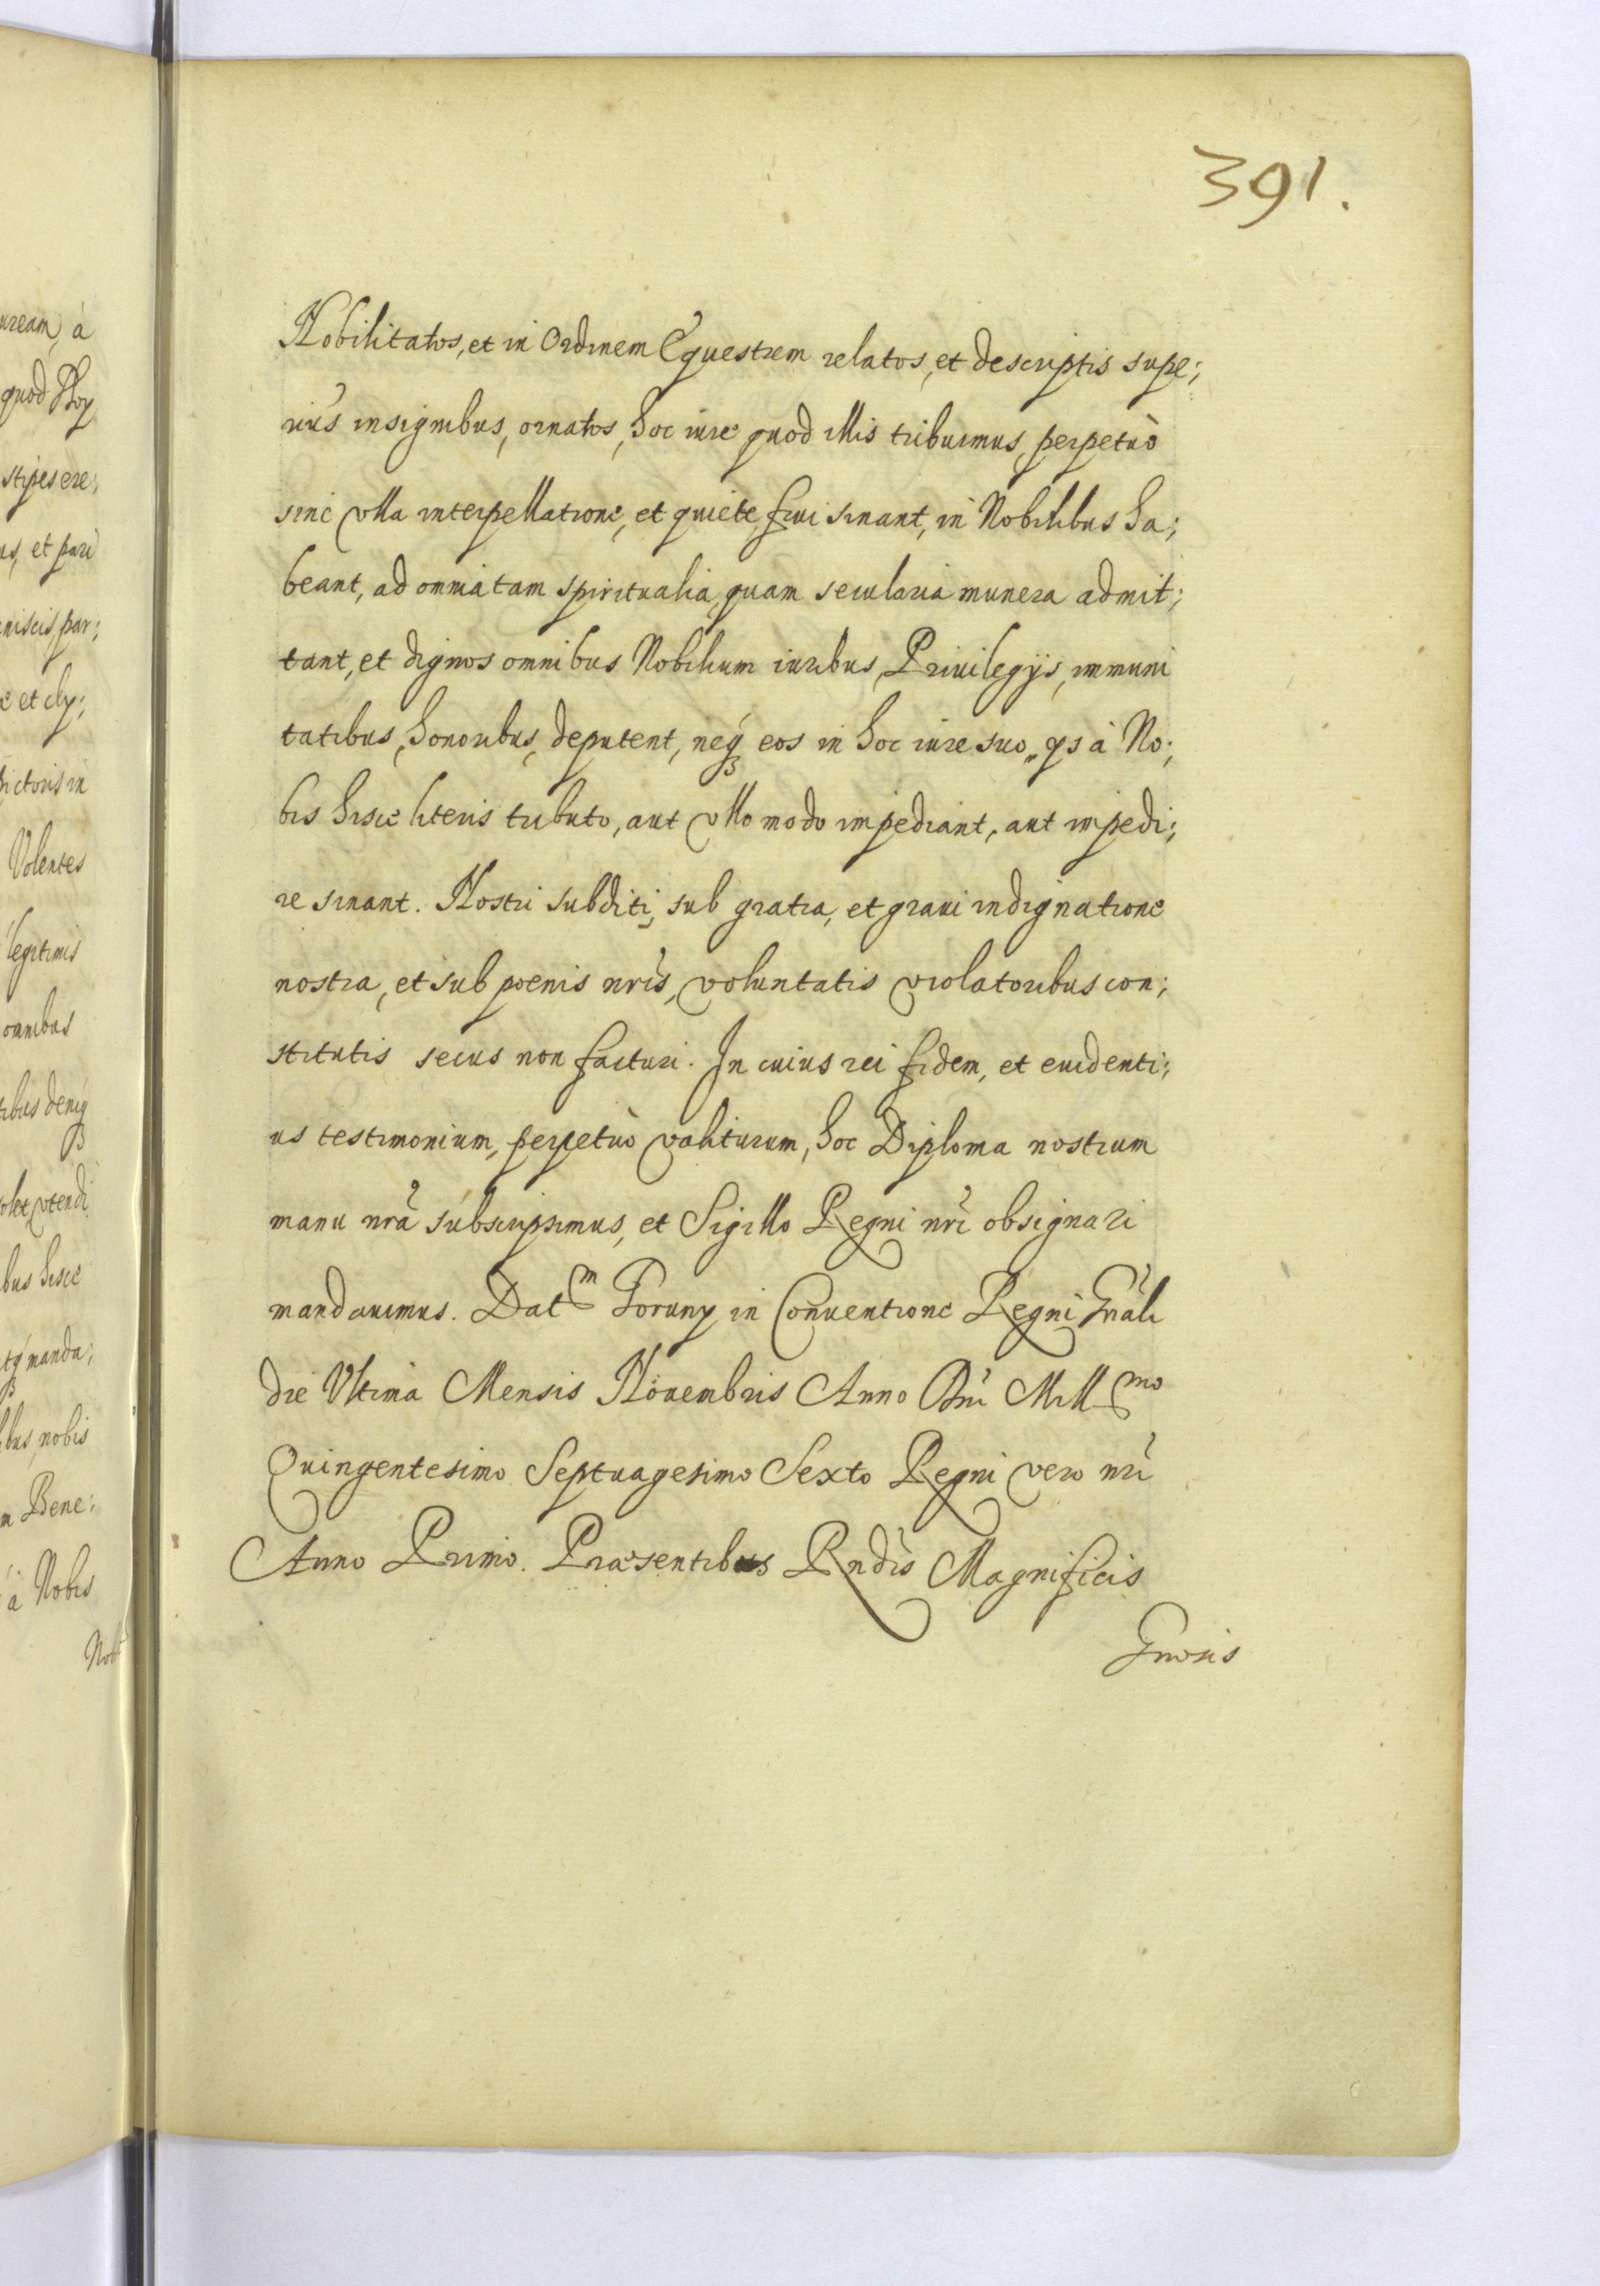 391.
Nobilitatos, et in Ordinem Equestrem relatos, et descriptis supe;
riùs insignibus, ornatos, hoc iure quod illis tribuimus, perpetuò
sine vlla interpellatione, et quiete frui sinant, in Nobilibus ha;
beant, ad omnia tam spiritualia, quam secularia munera admit;
tant, et dignos omnibus Nobilium iuribus, Priuilegijs, immuni
tatibus, honoribus, deputent, neq3 eos in hoc iure suo, ijs à No;
bis hisce literis tributo, aut vllo modo impediant, aut impedi;
re sinant. Nostri subditi, sub gratia, et graui indignatione
nostra, et sub poenis nr̃is, voluntatis violatoribus con;
stitutis secus non facturi. In cuius rei fidem, et euidenti;
us testimonium, perpetuò valiturum, hoc Diploma nostrum
manu nr̃a subscripsimus, et Sigillo Regni nr̃i obsignari
mandauimus. Datm Toruny in Conuentione Regni Gñali
die Vltima Mensis Nouembris Anno Dñi Millmo
Quingentesimo Septuagesimo Sexto Regni vero nr̃i
Anno Primo. Praesentibus Rndis Magnificis
Gnosis
uream, à
quod
stipes ere;
us, et pari
niscis par;
e et cly;
dictoris in
Volentes
legitimis
omnibus
ibus deniq3
vtendi
bus hisce
manda;
ibus, nobis
m Bene;
à Nobis
Nobi